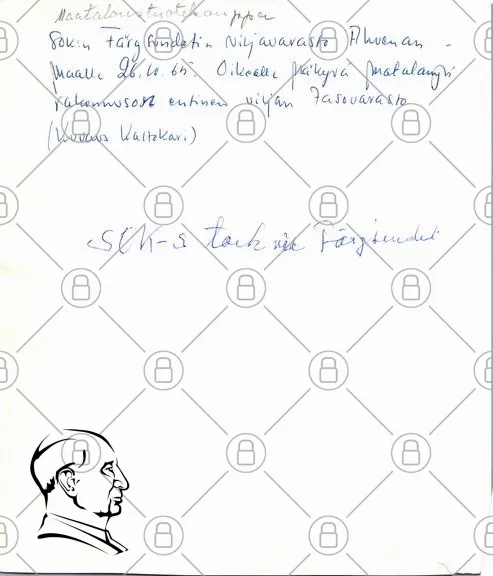 Maataloustuotekauppa
SOK:n Färgsundetin viljavarasto Ahvenan-
maalla 26.10.65. Oikealla näkyvä matalampi
rakennusosa entinen viljan tasovarasto
(Kuvaus Kaltokari)
SOK-s tork vie Färgsundet